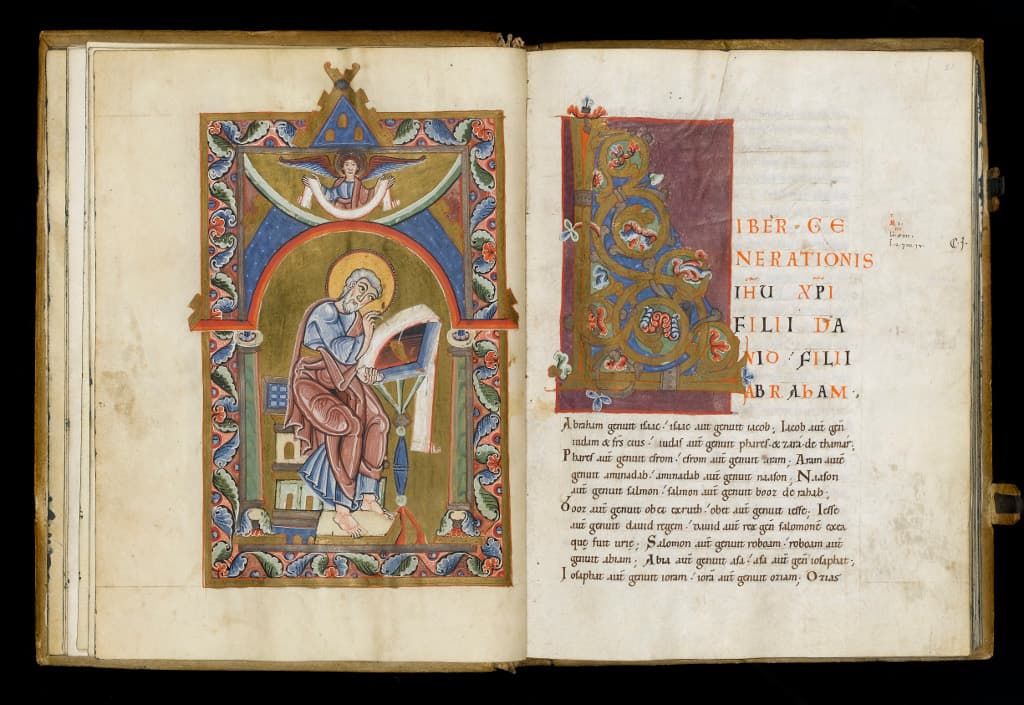 LIBER · GE
NERATIONIS
IHU XPI
FILII DA
VID · FILII
ABRAHAM ·
Abraham genuit isaac · isaac aut̄ genuit iacob ; Iacob aut̄ gen̄
iudam & frs̄ eius · iudas aut̄ genuit phares & zarā de thamar ;
Phares aut̄ genuit esrom · esrom aut̄ genuit aram ; Aram aut̄
genuit aminadab · aminadab aut̄ genuit naason ; Naason
aut̄ genuit salmon · salmon aut̄ genuit booz de rahab ;
Booz aut̄ genuit obeť exruth · obet aut̄ genuit iesse ; Iesse
aut̄ genuit dauid regem · dauid aut̄ rex gen̄ salomonē exea
que fuit urie ; Salomon aut̄ genuit roboam · roboam aut̄
genuit abiam ; Abia aut̄ genuit asa · asa aut̄ gen̄ iosaphat ;
Iosaphat aut̄ genuit ioram · iorā aut̄ genuit oziam ; Ozias
C. j.